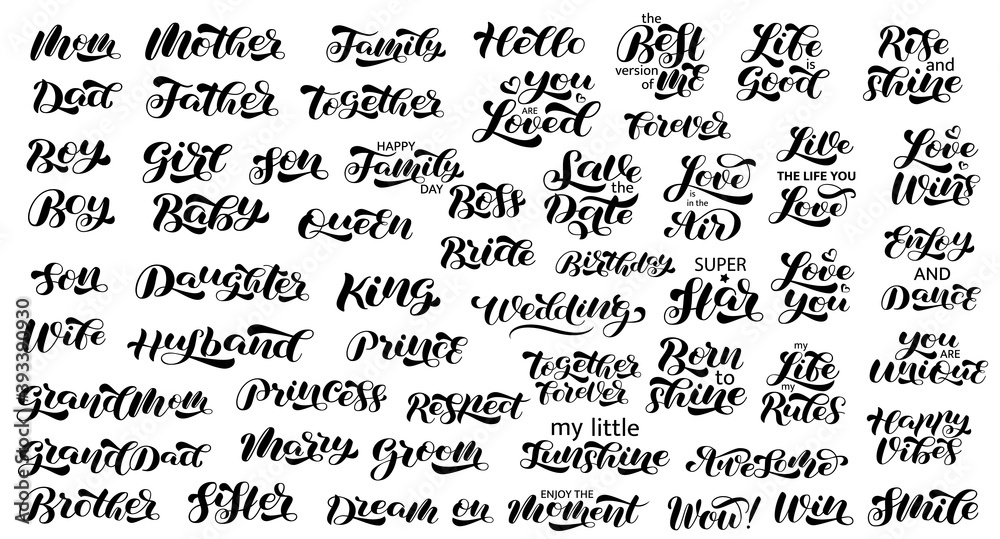 Mom
Mother
Family
Hello
the
Best
version
of me
Life
is
Good
Rise
and
shine
Dad
Father
Together
you
ARE
Loved
forever
Boy
Girl
Son
HAPPY
Family
DAY
Boss
Save
the
Date
Love
is in the
Air
Live
THE LIFE YOU
Love
Love
Wins
Boy
Baby
Queen
Bride
Birthday
Enjoy
AND
Dance
Son
Daughter
King
Wedding
SUPER
Star
Love
you
Wife
Husband
Prince
Together
forever
Born
to
shine
my
Life
my
Rules
you
ARE
unique
grandMom
Princess
Respect
Happy
Vibes
grandDad
Marry
Groom
my little
Sunshine
Awesome
Brother
Sister
Dream on
ENJOY THE
moment
Wow!
Win
Smile
Adobe Stock | #393390930